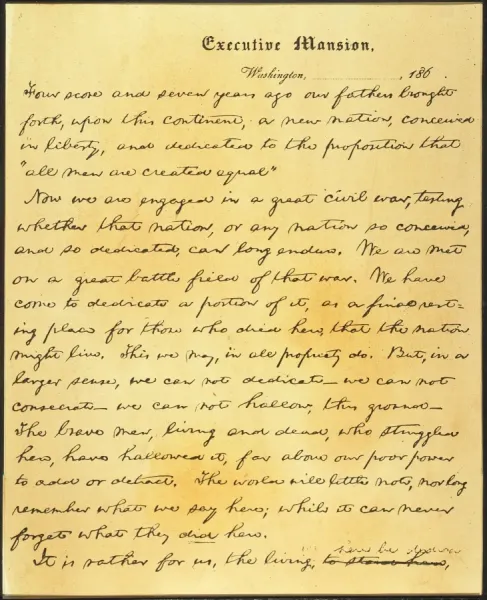 Executive Mansion,
Washington, , 186 .
Four score and seven years ago our fathers brought
forth, upon this continent, a new nation, conceived
in liberty, and dedicated to the proposition that
"all men are created equal"
Now we are engaged in a great civil war, testing
whether that nation, or any nation so conceived,
and so dedicated, can long endure. We are met
on a great battle field of that war. We have
come to dedicate a portion of it, as a final rest-
ing place for those who died here, that the nation
might live. This we may, in all propriety do. But, in a
larger sense, we can not dedicate — we can not
consecrate — we can not hallow, this ground —
The brave men, living and dead, who struggled
here, have hallowed it, far above our poor power
to add or detract. The world will little note, nor long
remember what we say here; while it can never
forget what they did here.
It is rather for us, the living, to stand here,
here be